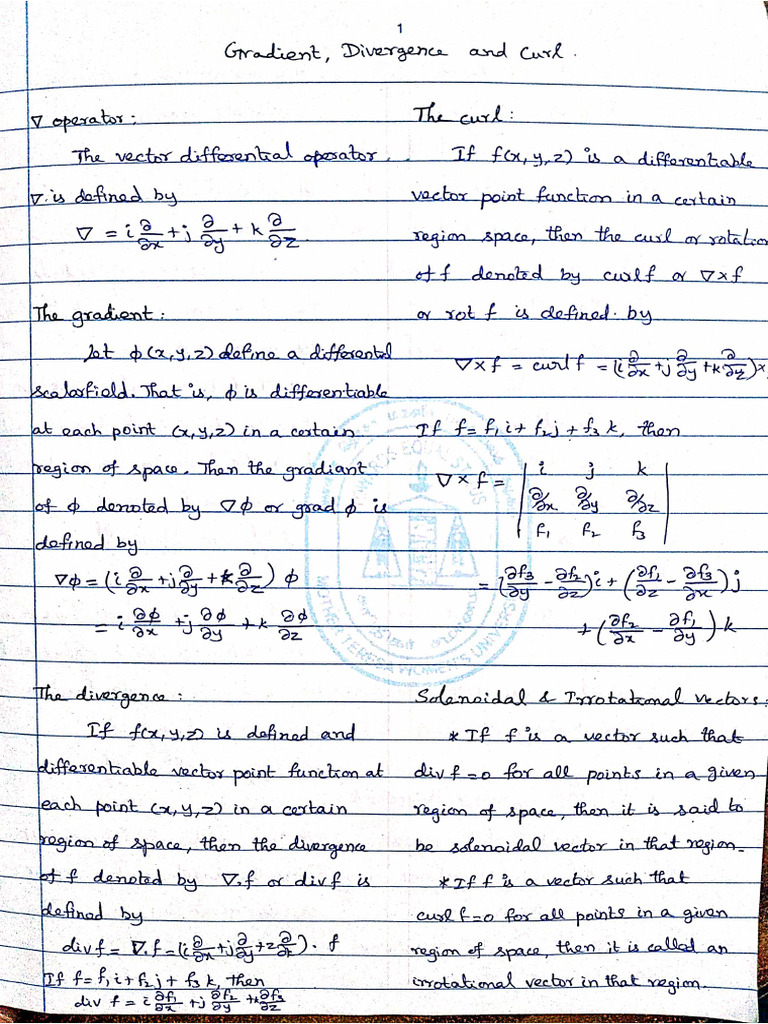 1
Gradient, Divergence and Curl.
∇ operator:
The vector differential operator
∇ is defined by
∇ = i ∂/∂x + j ∂/∂y + k ∂/∂z.
The gradient:
Let ϕ(x,y,z) define a differental
scalarfield. That is, ϕ is differentiable
at each point (x,y,z) in a certain
region of space. Then the gradiant
of ϕ denoted by ∇ϕ or grad ϕ is
defined by
∇ϕ = (i ∂/∂x + j ∂/∂y + k ∂/∂z) ϕ
= i ∂ϕ/∂x + j ∂ϕ/∂y + k ∂ϕ/∂z
The divergence:
If f(x,y,z) is defined and
differentiable vector point function at
each point (x,y,z) in a certain
region of space, then the divergence
of f denoted by ∇.f or div f is
defined by
div f = ∇.f = (i ∂/∂x + j ∂/∂y + z ∂/∂z). f
If f = f₁i + f₂j + f₃k, then
div f = i ∂f₁/∂x + j ∂f₂/∂y + k ∂f₃/∂z
The curl:
If f(x,y,z) is a differentiable
vector point function in a certain
region space, then the curl or rotation
of f denoted by curl f or ∇×f
or rot f is defined by
∇×f = curl f = (i ∂/∂x + j ∂/∂y + k ∂/∂z) ×
If f = f₁i + f₂j + f₃k, then
∇×f = | i j k |
| ∂/∂x ∂/∂y ∂/∂z |
| f₁ f₂ f₃ |
= (∂f₃/∂y - ∂f₂/∂z) i + (∂f₁/∂z - ∂f₃/∂x) j
+ (∂f₂/∂x - ∂f₁/∂y) k
Solenoidal & Irrotational vectors:
* If f is a vector such that
div f = 0 for all points in a given
region of space, then it is said to
be solenoidal vector in that region.
* If f is a vector such that
curl f = 0 for all points in a given
region of space, then it is called an
irrotational vector in that region.
MOTHER TERESA WOMEN'S UNIVERSITY